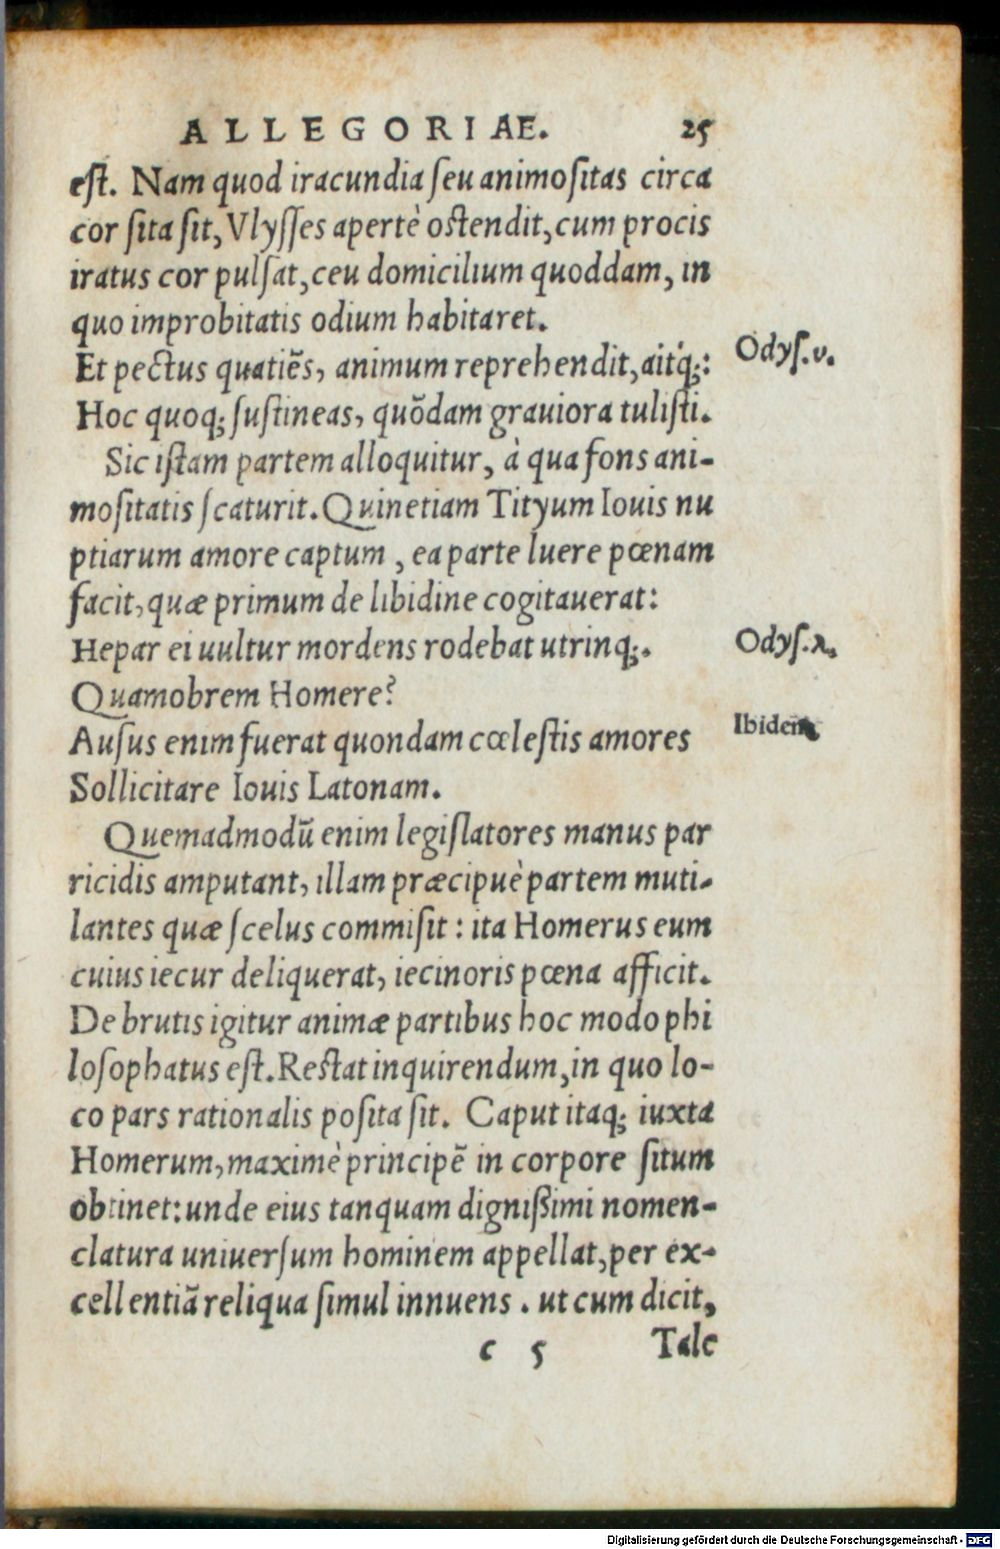 ALLEGORIAE. 25
eſt. Nam quod iracundia ſeu animoſitas circa
cor ſita ſit, Vlyſſes apertè oſtendit, cum procis
iratus cor pulſat, ceu domicilium quoddam, in
quo improbitatis odium habitaret.
Et pectus quatiẽs, animum reprehendit, aitq́;: Odyſ.υ.
Hoc quoq; ſuſtineas, quõdam grauiora tuliſti.
Sic iſtam partem alloquitur, à qua fons ani-
moſitatis ſcaturit. Quinetiam Tityum Iouis nu
ptiarum amore captum, ea parte luere pœnam
facit, quæ primum de libidine cogitauerat:
Hepar ei uultur mordens rodebat utrinq;. Odyſ.λ.
Quamobrem Homere?
Auſus enim fuerat quondam cœleſtis amores Ibidem
Sollicitare Iouis Latonam.
Quemadmodũ enim legiſlatores manus par
ricidis amputant, illam præcipuè partem muti-
lantes quæ ſcelus commiſit: ita Homerus eum
cuius iecur deliquerat, iecinoris pœna afficit.
De brutis igitur animæ partibus hoc modo phi
loſophatus eſt. Reſtat inquirendum, in quo lo-
co pars rationalis poſita ſit. Caput itaq; iuxta
Homerum, maximè principẽ in corpore ſitum
obtinet: unde eius tanquam digniſsimi nomen-
clatura uniuerſum hominem appellat, per ex-
cellentiã reliqua ſimul innuens. ut cum dicit,
c 5 Tale
Digitalisierung gefördert durch die Deutsche Forschungsgemeinschaft - DFG